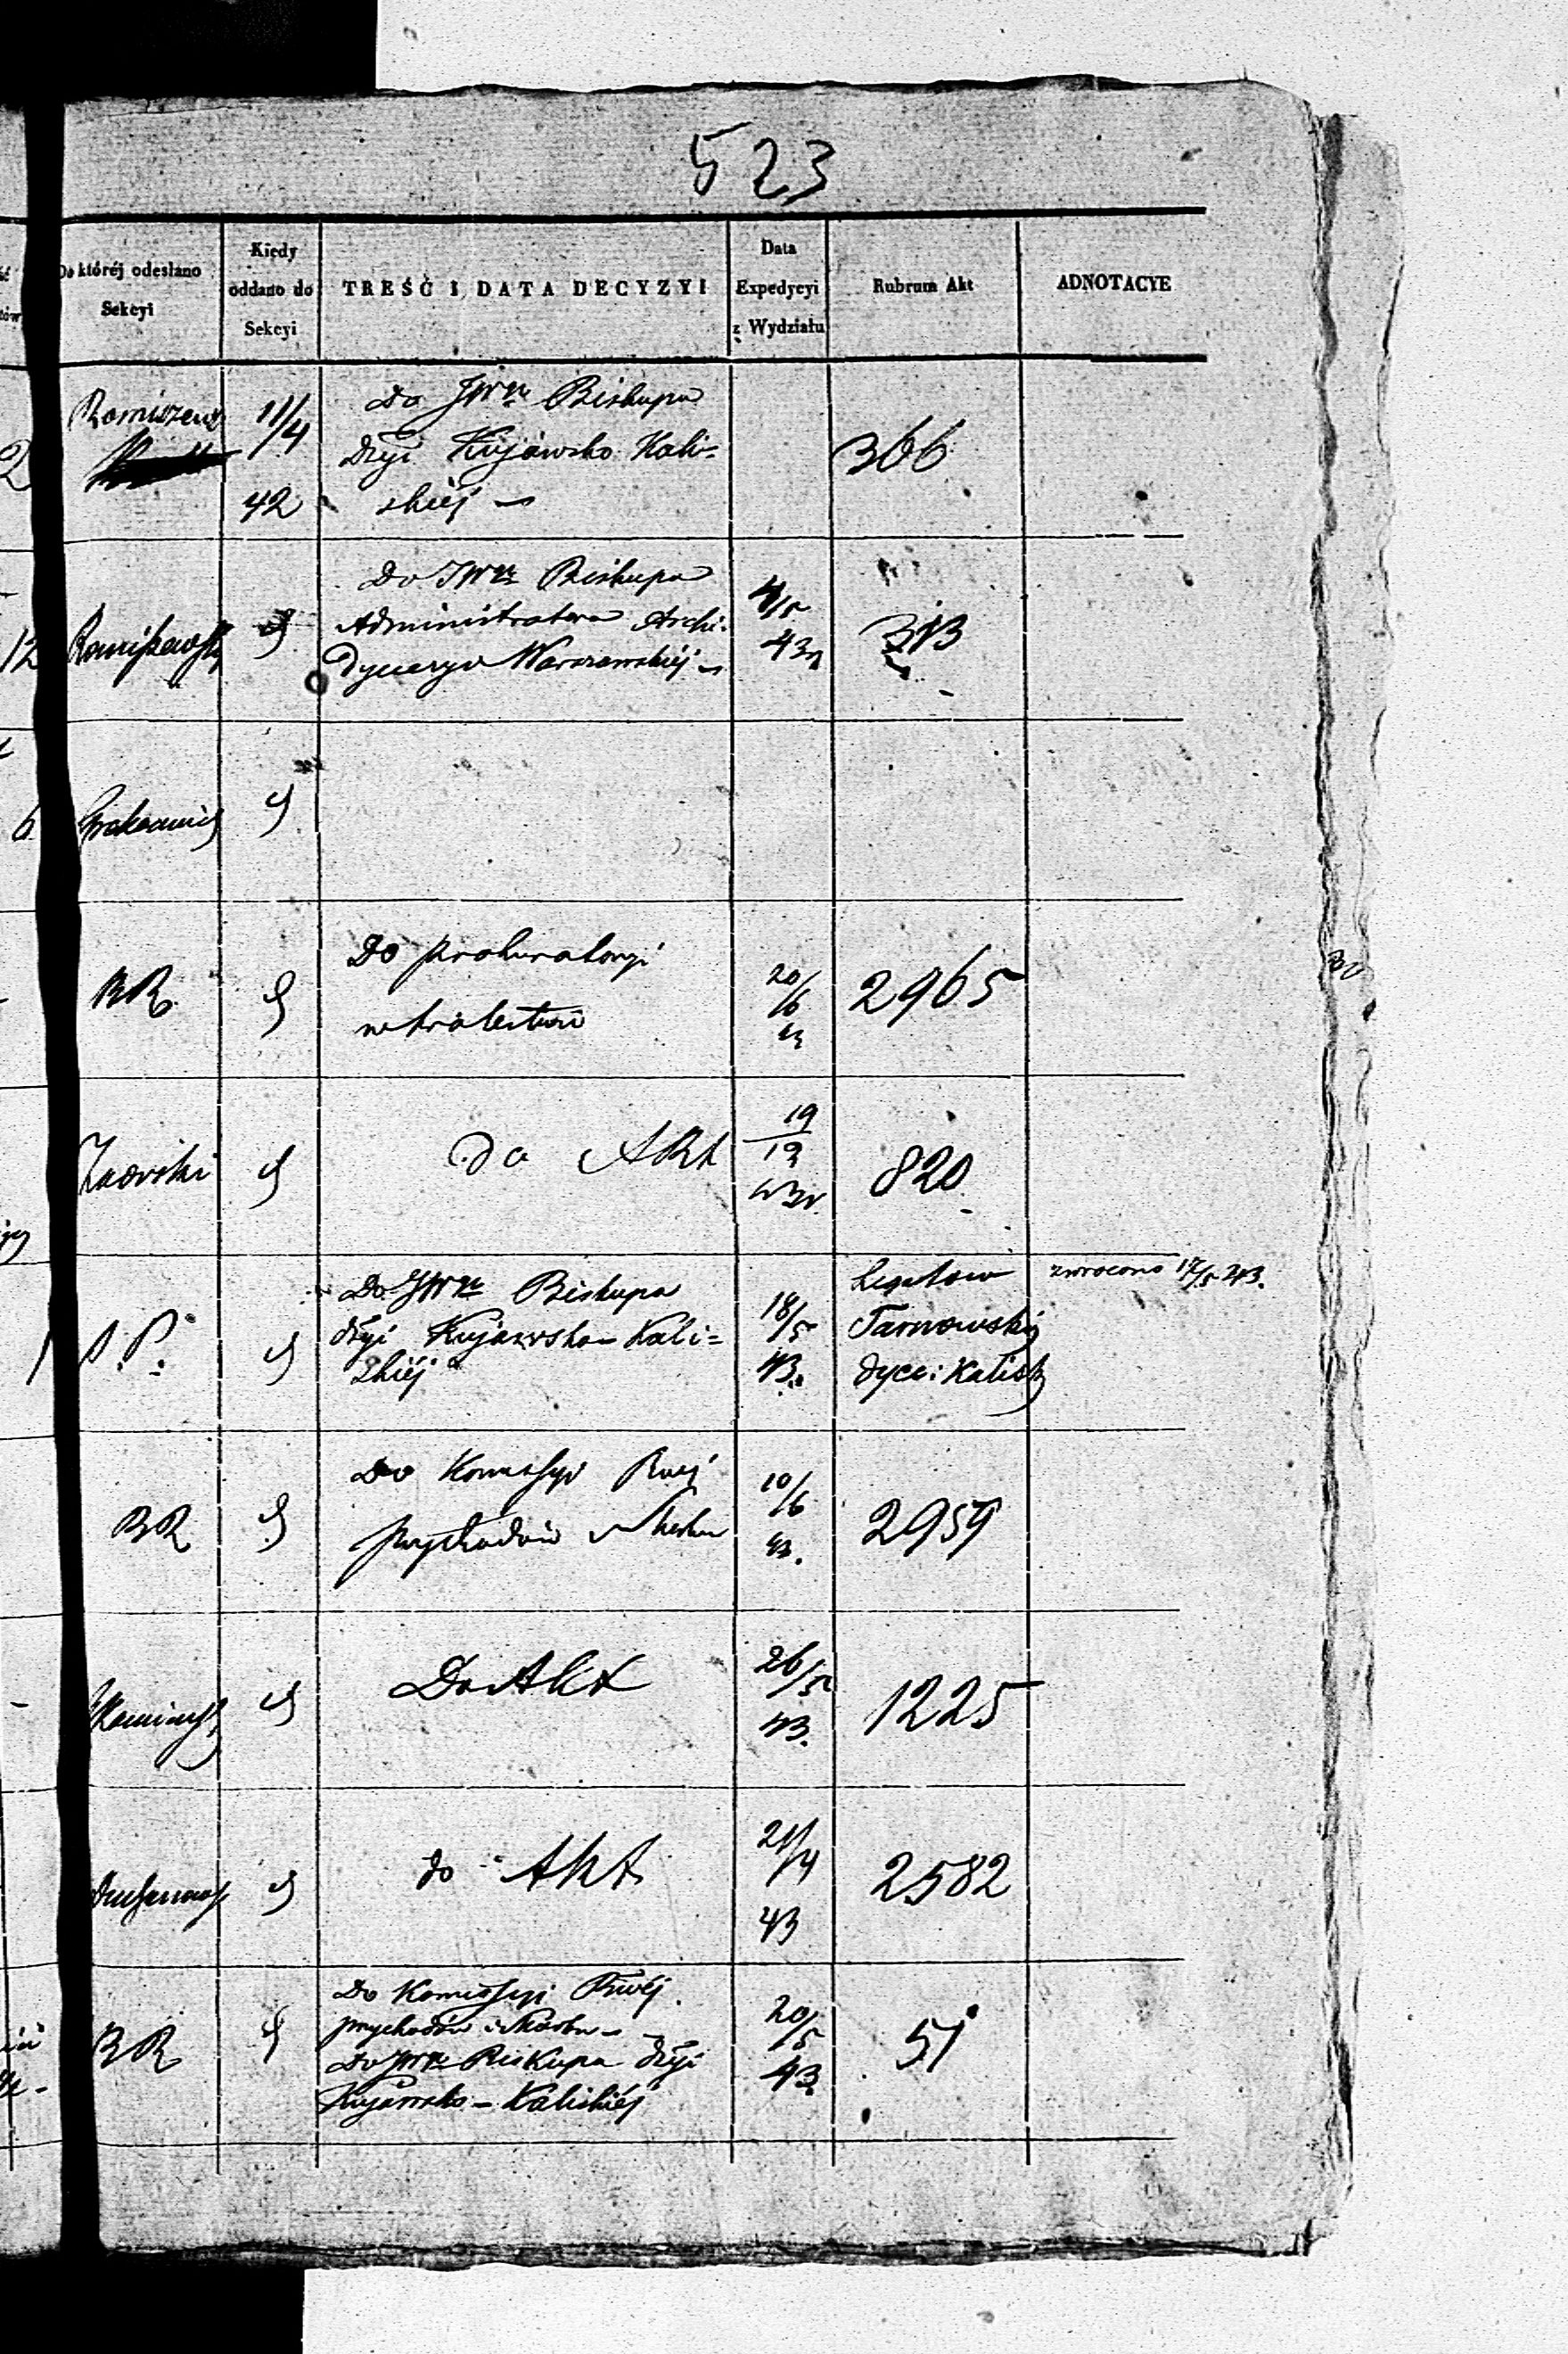 523
Do któréj odesłano
Sekcyi
Kiedy
oddano do
Sekcyi
TREŚĆ I DATA DECYZYI
Data
Expedycyi
z Wydziału
Rubrum Akt
ADNOTACYE
11/4
42
Do JWn Biskupa
Dyi Kujawsko Kali-
skiéj
366
Do JWn Biskupa
Administratora Archi-
Dyecezyi Warszawskiéj
4/5
43
313
BR
Do prokuratoryi
20/6
43
2965
do Akt
19
12
820
P.P.
Do JWn Biskupa
dyi Kujawsko-Kali=
skiéj
18/5
43
Legatow
Tarnowski
dyec: Kalisk
zwrocono 17/5 43.
BR
Do Komissyi Rwéj
przychodów i Skarbu
10/6
43.
2959
Do Akt
26/5
43.
1225
do Akt
21/4
43
2582
BR
Do Komissyi Rwéj
przychodów i Skarbu
Do JWn Biskupa dyi
Kujawsko-Kaliskiéj
20/5
43
51